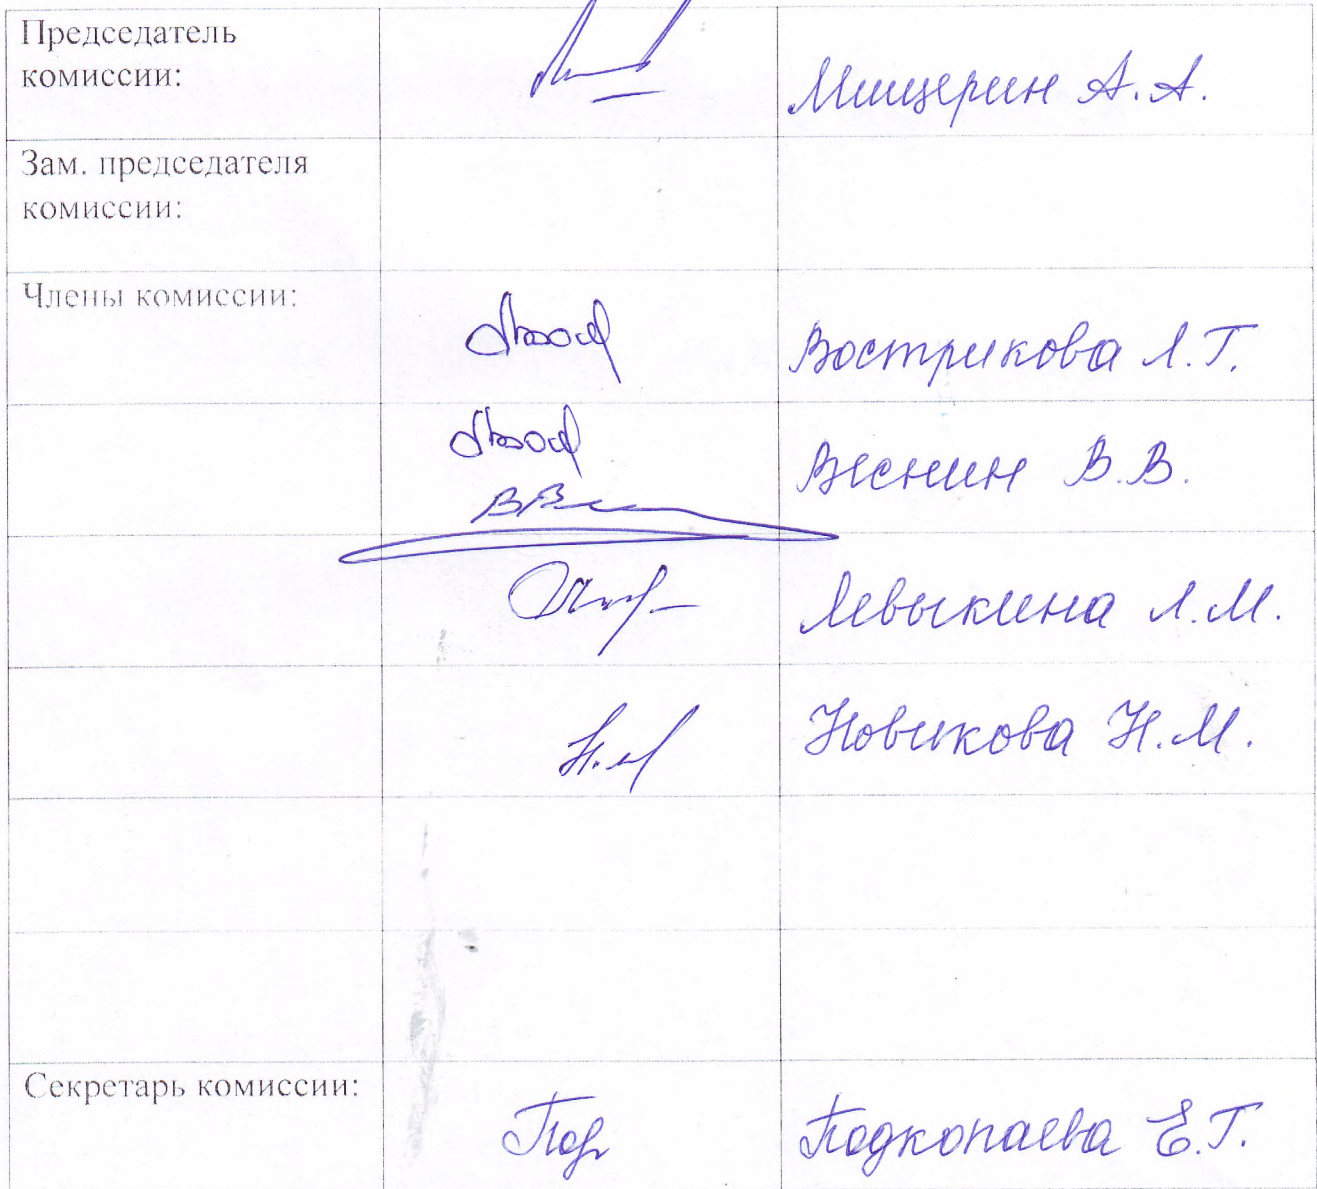 Председатель
комиссии:
Мищерин А.А.
Зам. председателя
комиссии:
Члены комиссии:
Вострикова Л.Г.
Веснин В.В.
Левыкина Л.М.
Новикова Н.М.
Н.М
Секретарь комиссии:
Под
Подкопаева Е.Г.